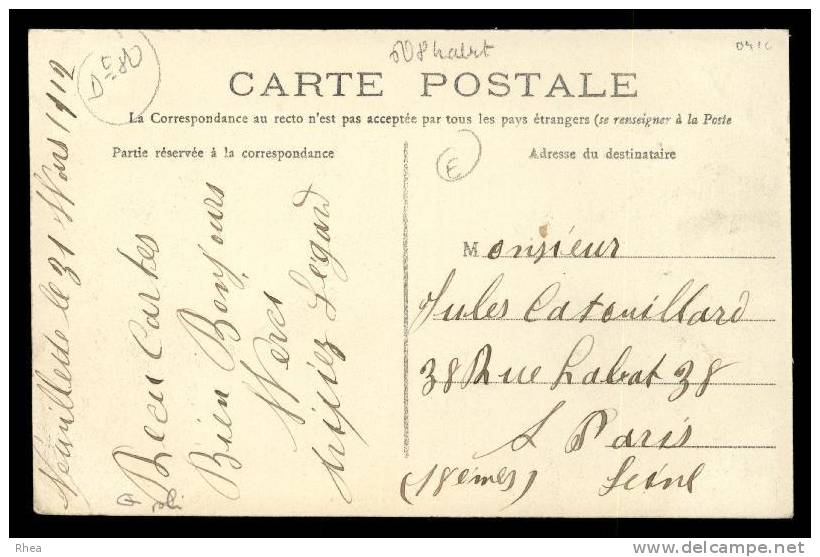 CARTE POSTALE
La Correspondance au recto n'est pas acceptée par tous les pays étrangers (se renseigner à la Poste
Partie réservée à la correspondance
Adresse du destinataire
le 31 Mars 1912
Recu Cartes
Bien Bonjours
Merci
Légard
Monsieur
Jules Catouillard
38 Rue Labat 38
Paris
(18èmes) Seine
E
Rhea
www.delcampe.net